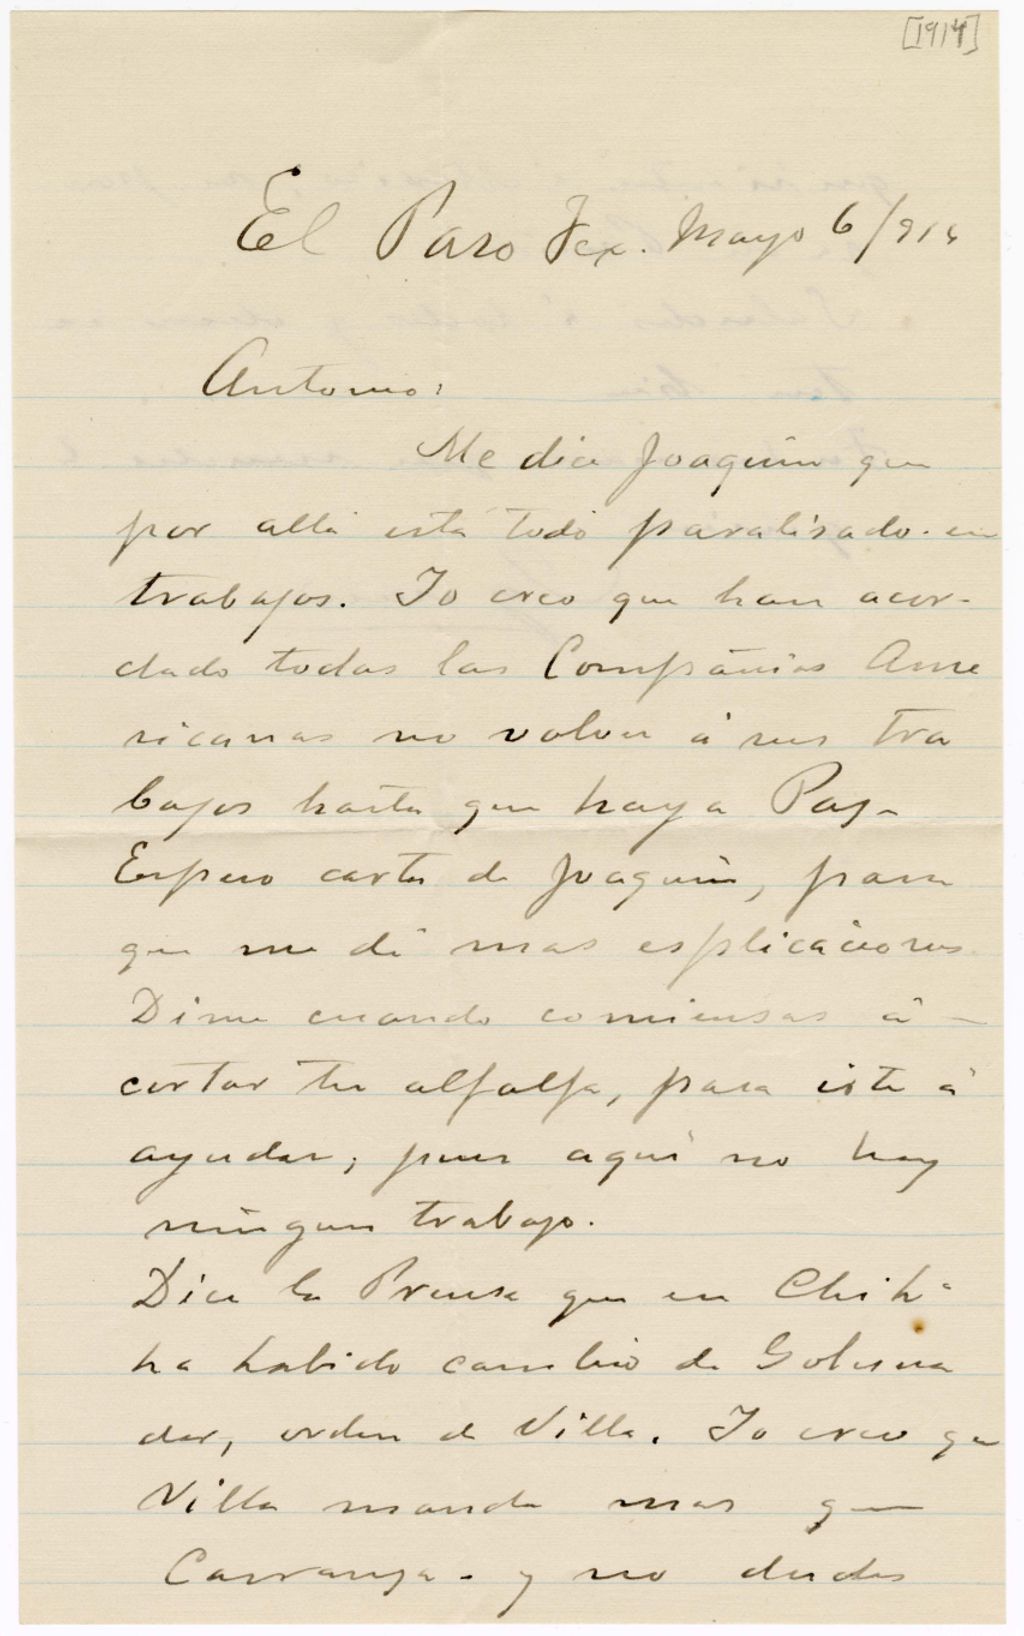 [1914]
El Paso Tex. Mayo 6/914
Antonio:
Me dice Joaquin que
por allá está todo paralisado en
trabajos. Yo creo que han acor-
dado todas las Compañias Ame
ricanas no volver á sus tra
bajos hasta que haya Paz-
Espero carta de Joaquin, para
que me dé mas esplicaciones.
Dime cuando comiensas á
cortar tu alfalfa, para irte á
ayudar, pues aqui no hay
ningun trabajo.
Dice la Prensa que en Chihª
ha habido cambio de Goberna
dor, orden de Villa. Yo creo que
Villa manda mas que
Carranza - y no dudes